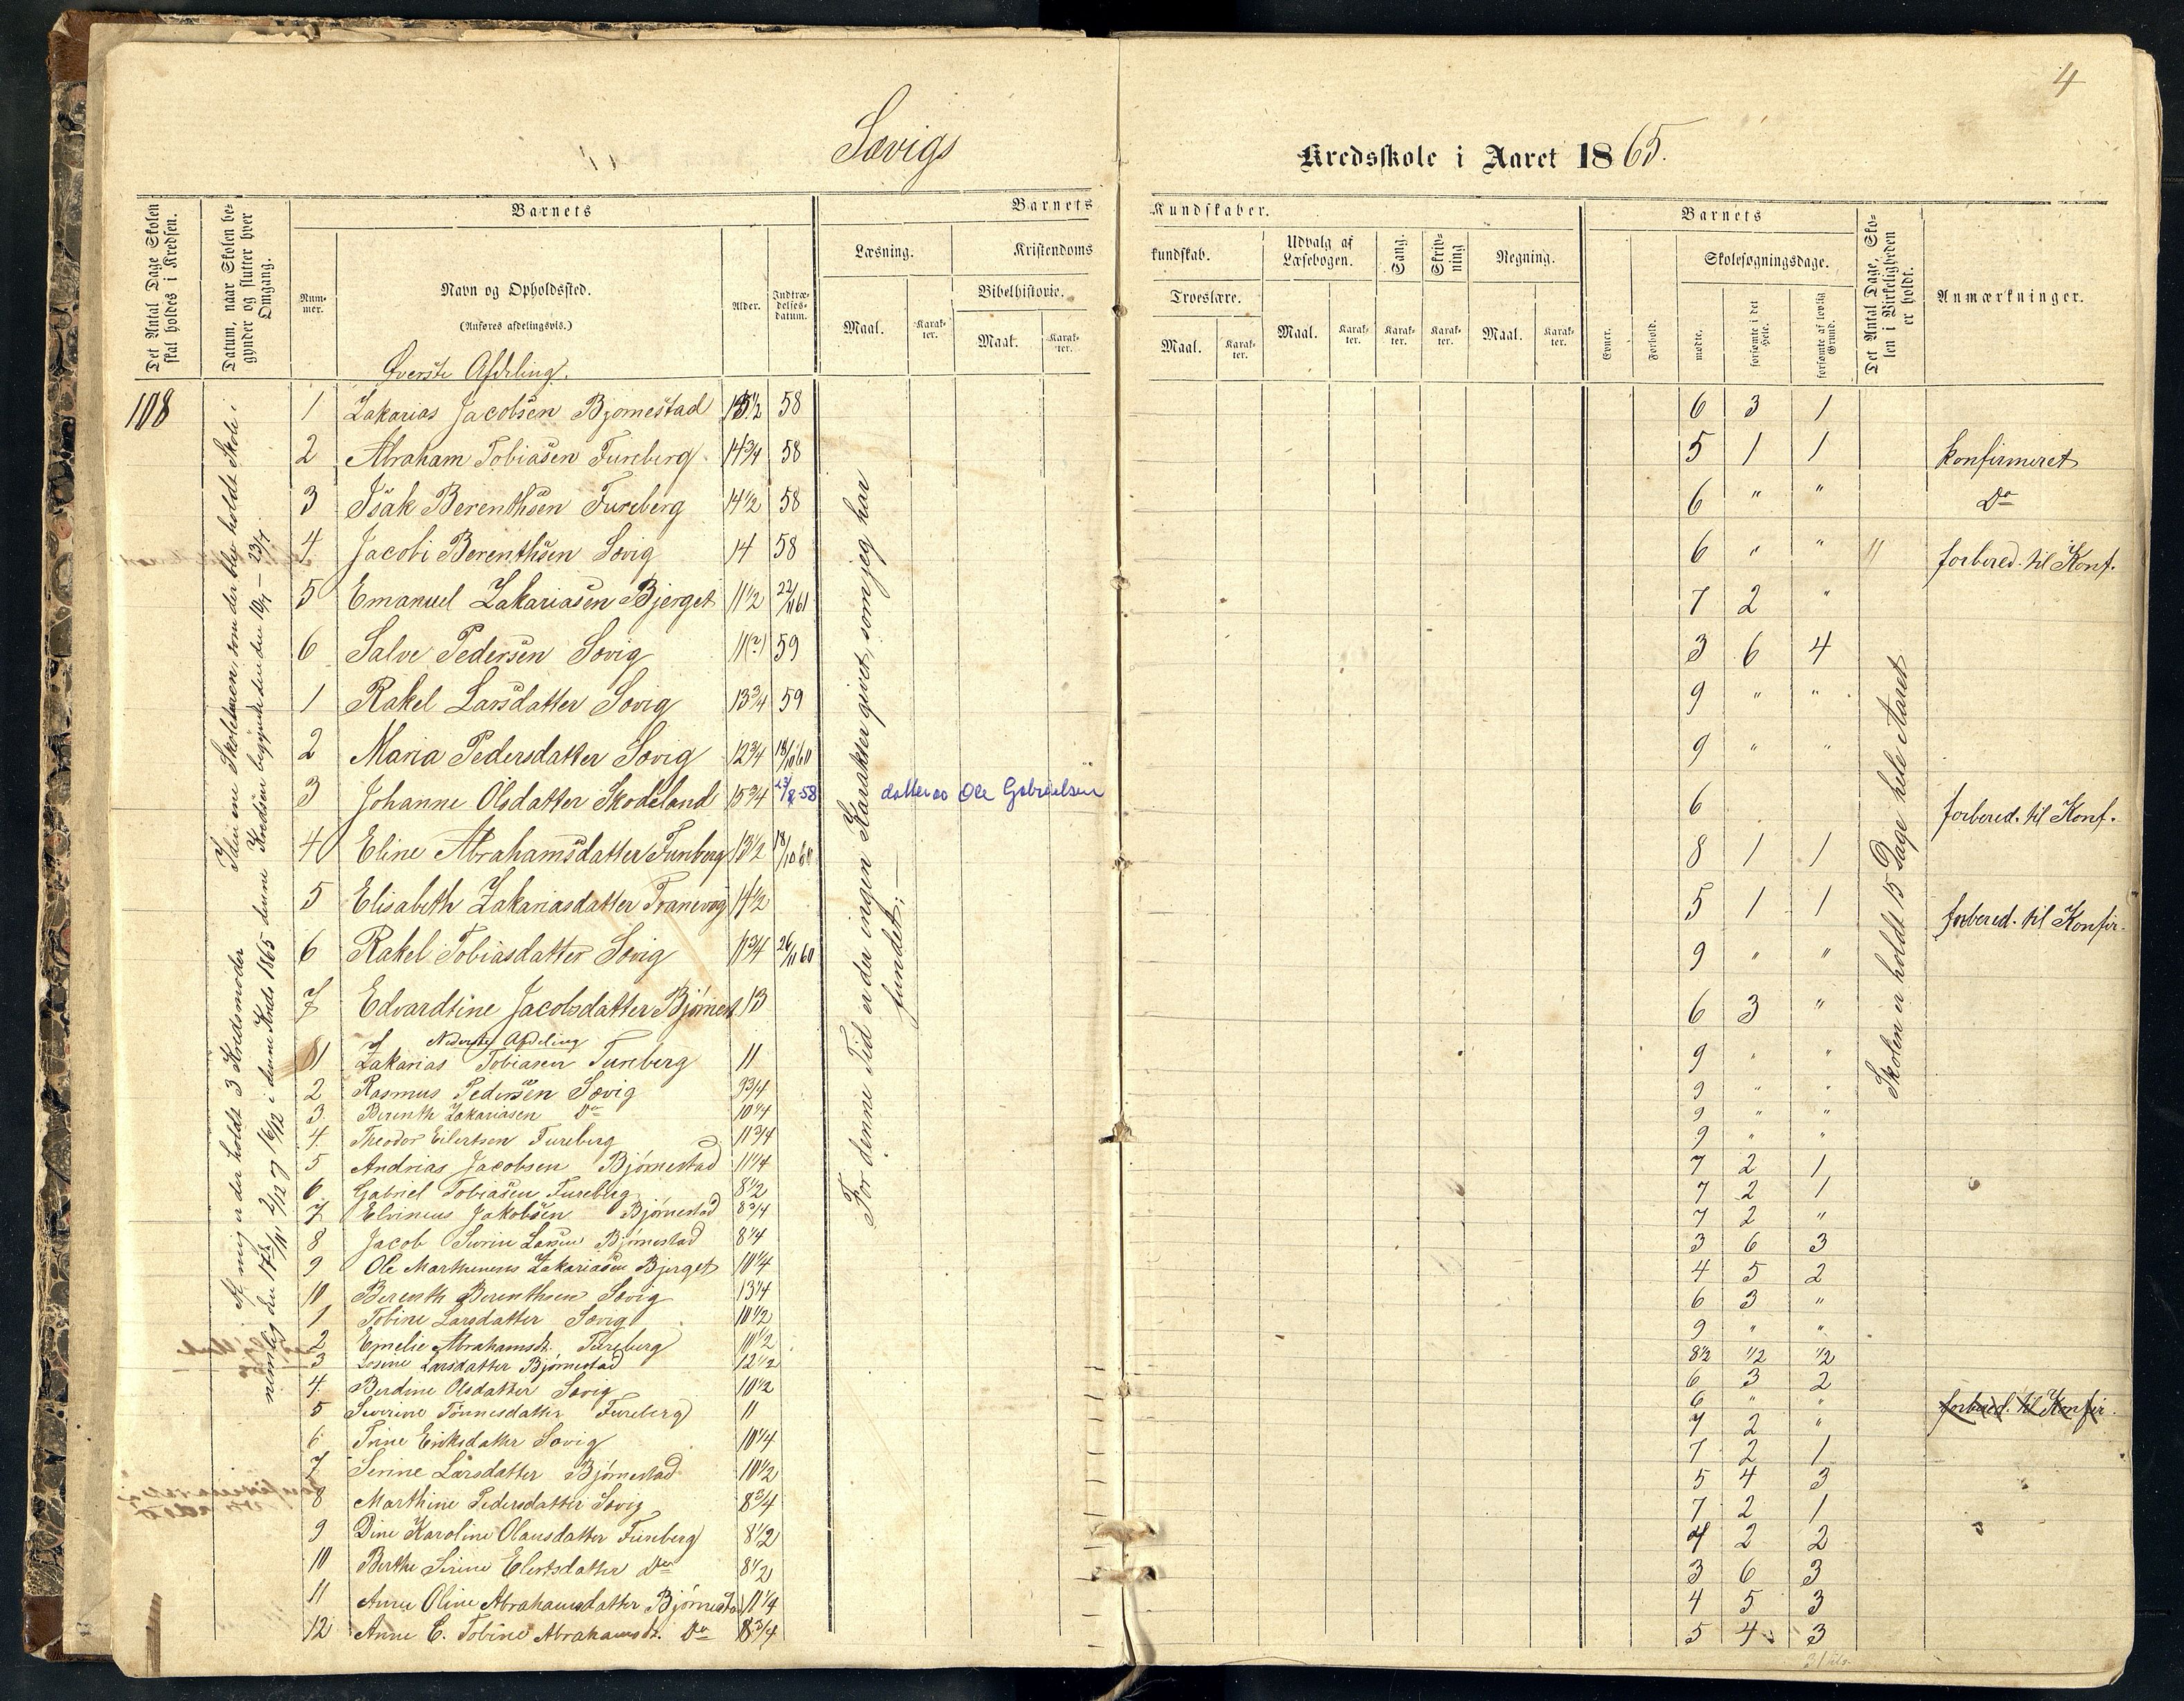 4
Sævigs
Kredsskole i Aaret 1865.
Det Antal Dage Skolen skal holdes i Kredsen.
Datum, naar Skolen begynder og slutter hver Omgang.
Barnets
Nummer.
Navn og Opholdssted.
(Anføres afdelingsvis.)
Alder.
Indtrædelsesdatum.
Barnets
Kundskaber.
Læsning.
Maal.
Karakter.
Kristendoms
kundskab.
Bibelhistorie.
Maal.
Karakter.
Troeslære.
Maal.
Karakter.
Udvalg af Læsebogen.
Maal.
Karakter.
Sang.
Karakter.
Skrivning
Karakter.
Regning.
Maal.
Karakter.
Barnets
Evner.
Forhold.
Skolesøgningsdage.
mødte.
forsømte i det Hele.
forsømte af lovlig Grund.
Det Antal Dage, Skolen i Virkeligheden er holdt.
Anmærkninger.
Øverste Afdeling.
108
1 Zakarias Jacobsen Bjørnestad 58 6 3 1
2 Abraham Tobiasen Fureberg 14 3/4 58 5 1 1 Konfirmeret
3 Isak Berenthsen Fureberg 14 1/2 58 6 " " Do
4 Jacobi Berenthsen Søvig 14 58 6 " " forbered. til Konf.
5 Emanuel Zakariasen Bjerget 11 1/2 22/11 61 7 2 "
6 Salve Pedersen Søvig 11(?) 59 3 6 4
1 Rakel Larsdatter Søvig 13 3/4 59 9 " "
2 Maria Pedersdatter Søvig 12 3/4 18/10 60 9 " "
3 Johanne Olsdatter Skodeland 15 3/4 58 datter av Ole Gabrielsen 6 forbered. til Konf.
4 Eline Abrahamsdatter Fureberg 13 1/2 18/10 60 8 1 1
5 Elisabeth Zakariasdatter Tranevog 14 1/2 5 1 1 forbered. til Konfir.
6 Rakel Tobiasdatter Søvig 11 3/4 26/11 60 9 " "
7 Edvardtine Jacobsdatter Bjørnest 13 6 3 "
Nederste Afdeling
1 Zakarias Tobiasen Fureberg 11 9 " "
2 Rasmus Pedersen Sævig 9 3/4 9 " "
3 Berenth Zakariasen Do 10 1/4 9 " "
4. Theodor Eilertsen Fureberg 11 3/4 9 " "
5 Andrias Jacobsen Bjørnestad 11 1/4 7 2 1
6 Gabriel Tobiasen Fureberg 8 1/2 7 2 1
7 Elvineus Jakobsen Bjørnestad 8 3/4 7 2 "
8 Jacob Sevrin Larsen Bjørnestad 8 1/4 3 6 3
9 Ole Marthineus Zakariasen Bjerget 10 1/4 4 5 2
10 Berenth Berenthsen Søvig 13 1/4 6 3 "
1 Tobine Larsdatter Søvig 10 1/2 9 " "
2 Emelie Abrahamsdt. Fureberg 10 1/2 8 1/2 1/2 1/2
3 Larsdatter Bjørnestad 12 1/2 6 3 2
4. Berdine Olsdatter Søvig 10 1/2 6 " " forbered. til Konfir.
5 Severine Tønnesdatter Fureberg 11 7 2 "
6 Trine Eriksdatter Søvig 10 1/4 7 2 1
7 Serine Larsdatter Bjørnestad 10 1/2 5 4 3
8 Marthine Pedersdatter Søvig 8 3/4 7 2 1
9 Dine Karoline Olausdatter Fureberg 8 1/2 4 2 2
10 Berthe Serine Elertsdatter Do 8 1/2 3 6 3
11 Anne Oline Abrahamsdatter Bjørnestad 11 1/4 4 5 3
12 Anne E. Tobine Abrahamsdt. Do 8 3/4 5 4 3
Af mig er der holdt 3 Kredsmøder
nemlig den 17de/11 2/12 og 16/12 i denne Kreds 1865
Iden ene Skoletuen, som der blev holdt Skole i
denne Kredsen begyndte den 10/7 — 23/7
For denne Tid er der ingen Karakter givet, som jeg har
fundet. —
Skolen er holdt 15 Dage hele Aaret